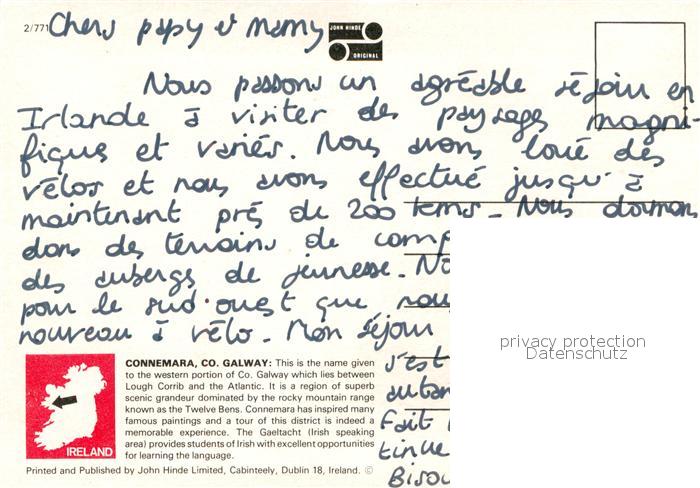 2/771
Chers papy et mamy
JOHN HINDE
ORIGINAL
Nous passons un agréable séjour en
Irlande à visiter des paysages magni-
fiques et variés. Nous avons loué des
vélos et nous avons effectué jusqu'à
maintenant prés de 200 kems. Nous dormons
dans des terrains de comp
des auberges de jeunesse. No
pour le sud-ouest que nou
nouveau à vélo. Mon séjour
s'est
autan
Fait
tinue
Bisou
privacy protection
Datenschutz
CONNEMARA, CO. GALWAY: This is the name given
to the western portion of Co. Galway which lies between
Lough Corrib and the Atlantic. It is a region of superb
scenic grandeur dominated by the rocky mountain range
known as the Twelve Bens. Connemara has inspired many
famous paintings and a tour of this district is indeed a
memorable experience. The Gaeltacht (Irish speaking
area) provides students of Irish with excellent opportunities
for learning the language.
IRELAND
Printed and Published by John Hinde Limited, Cabinteely, Dublin 18, Ireland. ©